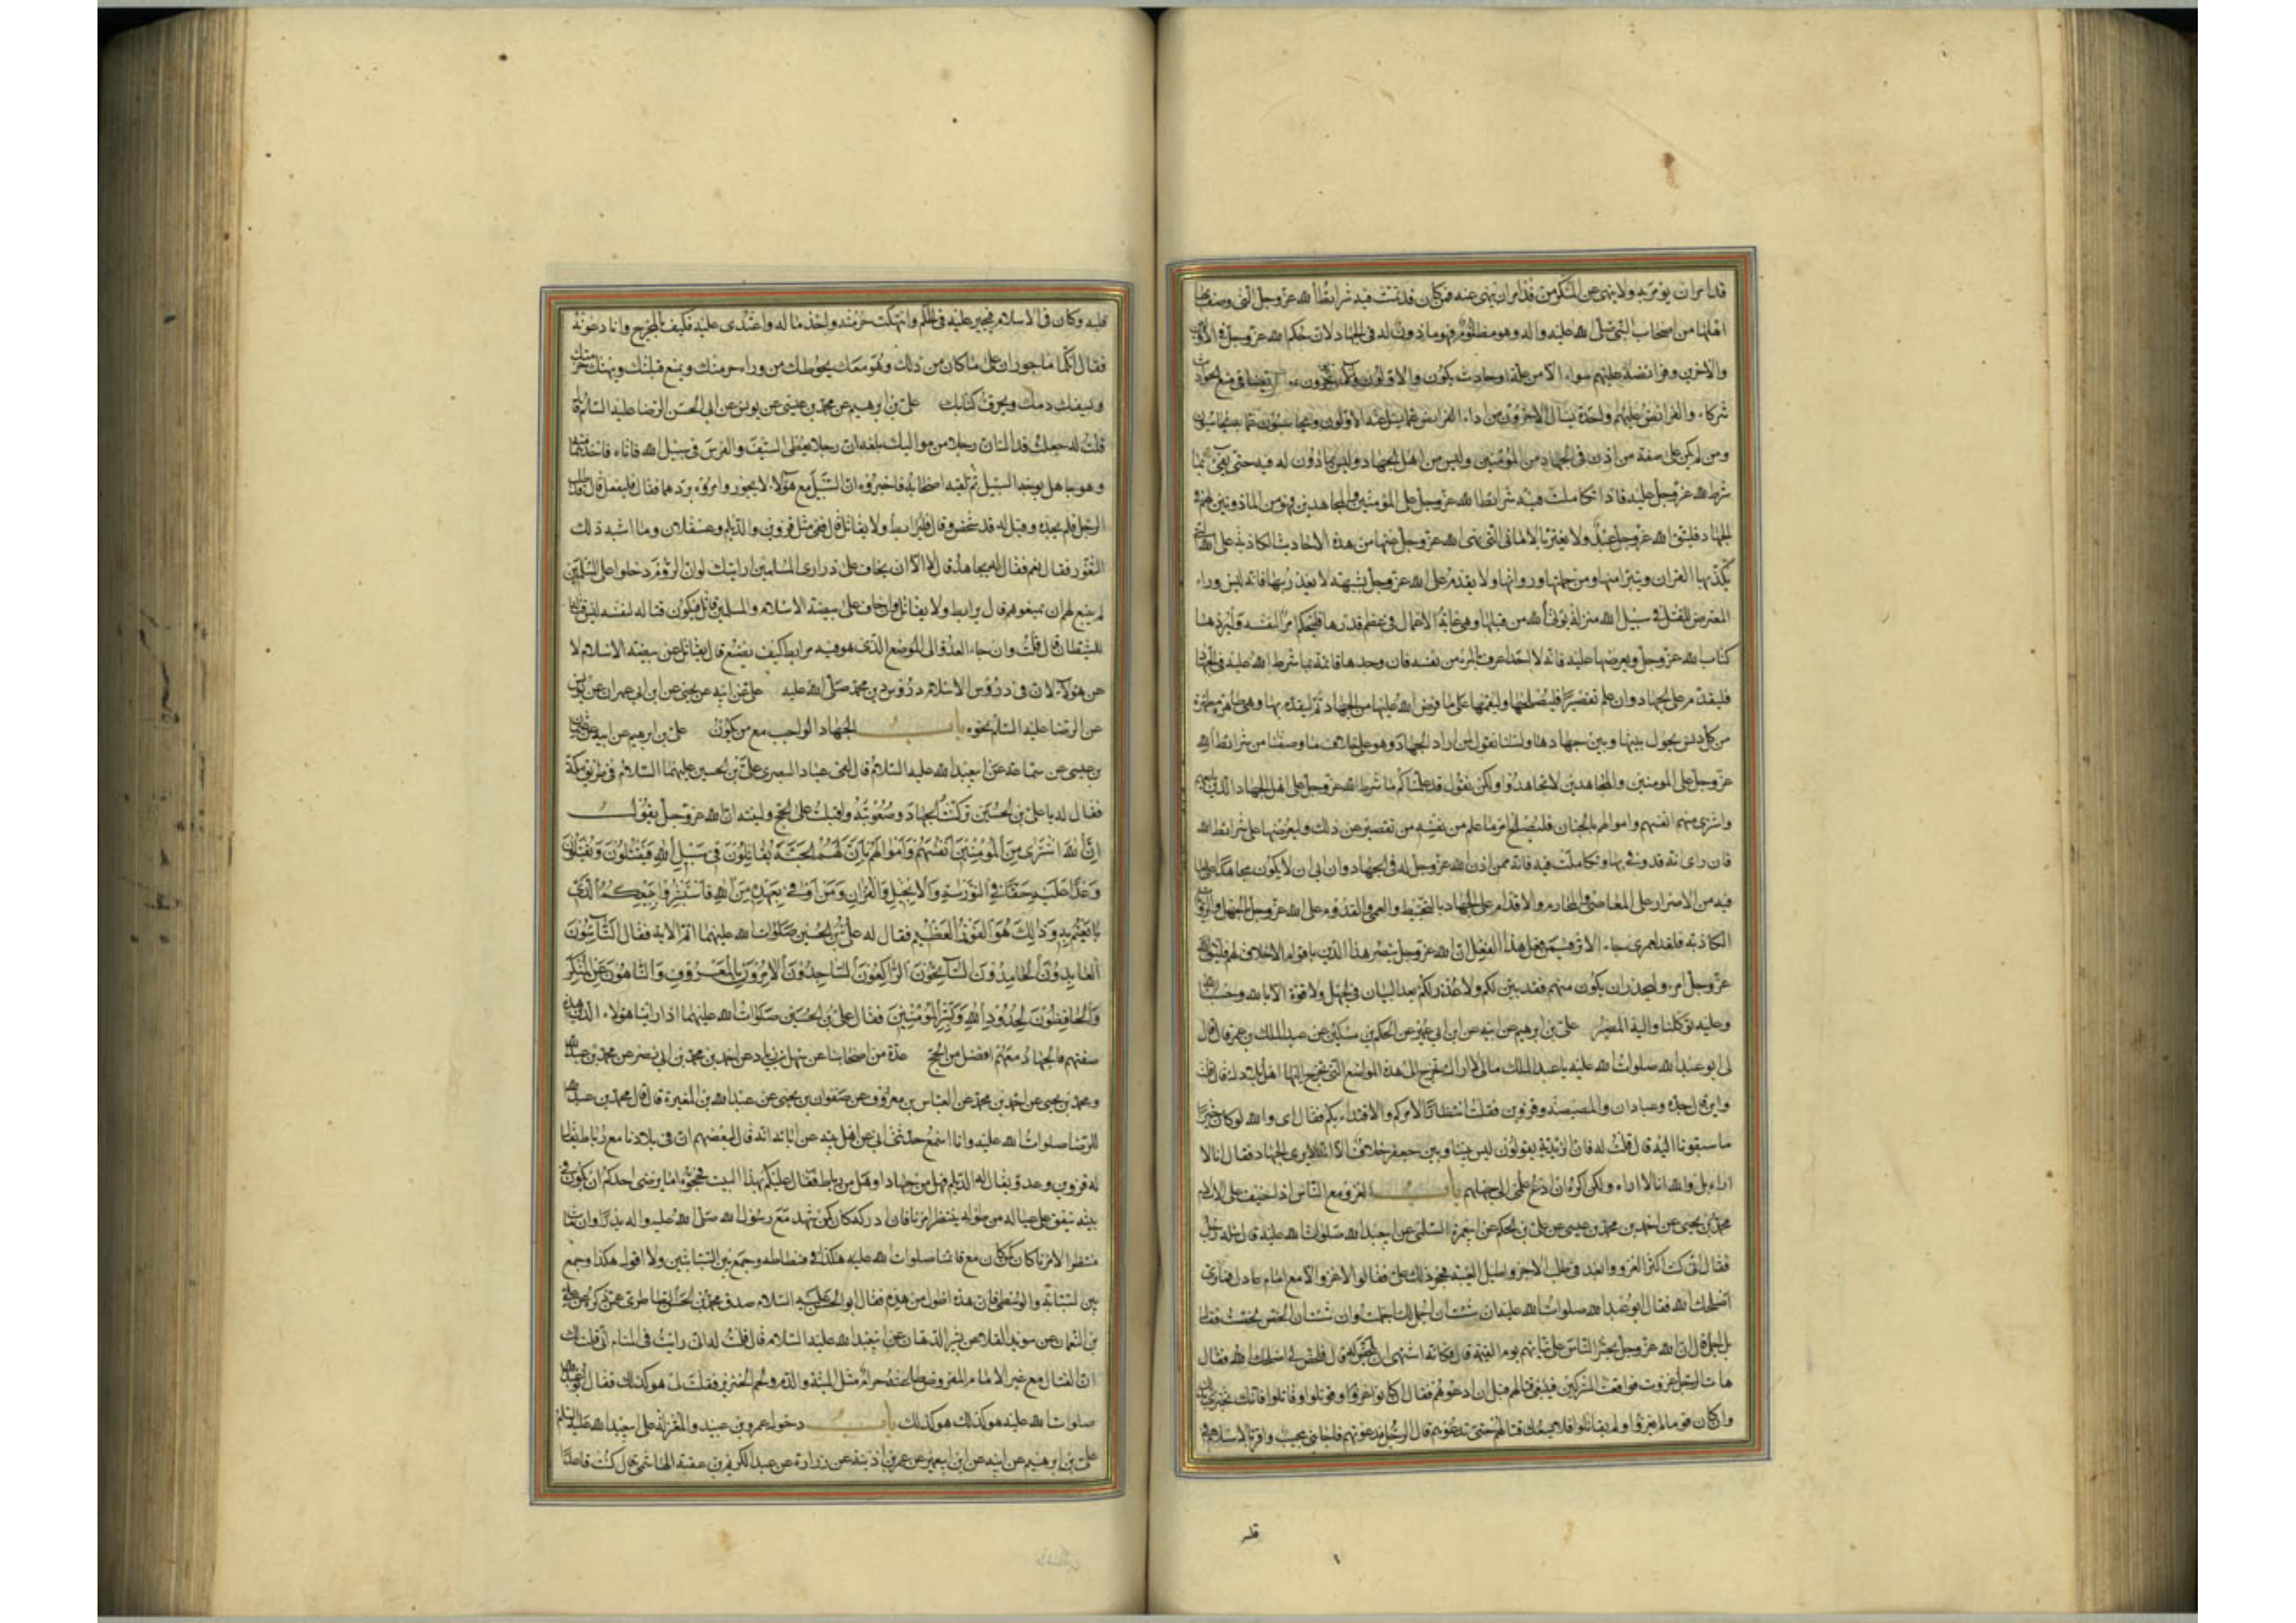 قد امر ان يؤمر به ولا ينهى عن المنكر من قد امر ان ينهى عنه فمن كان قد تمت فيه شرائط الله عز وجل التى وصف بها
اهلها من اصحاب النبى صلى الله عليه واله وهو مظلوم فهو ماذون له فى الجهاد لان حكم الله عز وجل فى الاولين
والاخرين وفرائضه عليهم سواء الا من علة او حادث يكون والاولون والاخرون ايضا فى منع الحوادث
شركاء والفرائض عليهم واحدة يسال الاخرون من اداء الفرائض عما يسال عنه الاولون ويحاسبون عما به يحاسبون
ومن لم يكن على صفة من اذن له فى الجهاد من المؤمنين وليس من اهل الجهاد وليس بماذون له فيه حتى يفئ بما
شرط الله عز وجل عليه فاذا تكاملت فيه شرائط الله عز وجل على المؤمنين والمجاهدين فهو من الماذونين لهم فى
الجهاد فليتق الله عز وجل عبد ولا يغتر بالامانى التى نهى الله عز وجل عنها من هذه الاحاديث الكاذبة على الله التى
يكذبها القران ويتبرا منها ومن حملتها ورواتها ولا يقدم على الله عز وجل بشبهة لا يعذر بها فانه ليس وراء
المتعرض للقتل فى سبيل الله منزلة يؤتى الله من قبلها وهى غاية الاعمال فى عظم قدرها فليحكم امرؤ لنفسه وليرها
كتاب الله عز وجل ويعرضها عليه فانه لا احد اعرف بالمرء من نفسه فان وجدها قائمة بما شرط الله عليه فى الجهاد
فليقدم على الجهاد وان علم تقصيرا فليصلحها وليقمها على ما فرض الله عليها من الجهاد ثم ليقدم بها وهى طاهرة مطهرة
من كل دنس يحول بينها وبين جهادها ولسنا نقول لمن اراد الجهاد وهو على خلاف ما وصفنا من شرائط الله
عز وجل على المومنين والمجاهدين لا تجاهدوا ولكن نقول قد علمناكم ما شرط الله عز وجل على اهل الجهاد الذين بايعهم
واشترى منهم انفسهم واموالهم بالجنان فليصلح امرؤ ما علم من نفسه من تقصير عن ذلك وليعرضها على شرائط الله
فان راى انه قد وفى بها وتكاملت فيه فانه ممن اذن الله عز وجل له فى الجهاد وان ابى ان لا يكون مجاهدا على ما
فيه من الاصرار على المعاصى والمحارم والاقدام على الجهاد بالتخبيط والعمى والقدوم على الله عز وجل بالجهل والروايات
الكاذبة فلقد لعمرى جاء الاثر فيمن فعل هذا الفعل ان الله عز وجل ينصر هذا الدين باقوام لا خلاق لهم فليتق الله
عز وجل امرء وليحذر ان يكون منهم فقد بين لكم ولا عذر لكم بعد البيان فى الجهل ولا قوة الا بالله وحسبنا الله
وعليه توكلنا واليه المصير على بن ابرهيم عن ابيه عن ابن ابى عمير عن الحكم بن مسكين عن عبد الملك بن عمرو قال قال
لى ابو عبد الله صلوات الله عليه يا عبد الملك مالى لا اراك تخرج الى هذه المواضع التى يخرج اليها اهل بلادك قال قلت
واين قال جدة وعبادان والمصيصة وقزوين فقلت انتظارا لامركم والاقتداء بكم فقال اى والله لو كان خيرا
ما سبقونا اليه قال قلت له فان الزيدية يقولون ليس بيننا وبين جعفر خلاف الا انه لا يرى الجهاد فقال انا لا
اراه بلى والله انى لاراه ولكن اكره ان ادع علمى الى جهلهم باب الغزو مع الناس اذا خيف على الاسلام
محمد بن يحيى عن احمد بن محمد بن عيسى عن على بن الحكم عن ابى عمرة السلمى عن ابى عبد الله صلوات الله عليه قال ساله رجل
فقال انى كنت اكثر الغزو وابعد فى طلب الاجر واطيل الغيبة فحجر ذلك على فقالوا لا غزو الا مع امام عادل فما ترى
اصلحك الله فقال ابو عبد الله صلوات الله عليه ان شئت ان اجمل لك اجملت وان شئت ان الخص لخصت فقال
بل اجمل قال ان الله عز وجل يحشر الناس على نياتهم يوم القيمة قال فكانه اشتهى ان يلخص له قال فلخص لى اصلحك الله فقال
هات فقال الرجل غزوت فواقعت المشركين فينبغى قتالهم قبل ان ادعوهم فقال ان كانوا غزوا وقوتلوا وقاتلوا فانك تجترى بذلك
وان كان قوما لم يغزوا ولم يقاتلوا فلا يسعك قتالهم حتى تدعوهم قال الرجل فدعوتهم فاجابنى مجيب واقر بالاسلام فى
قلبه
قلبه وكان فى الاسلام فجير عليه فى الحكم وانتهكت حرمته واخذ ماله واعتدى عليه فكيف بالمخرج وانا دعوته
فقال انكما ماجوران على ما كان من ذلك وهو معك يحوطك من وراء حرمتك ويمنع قبلتك
ويحقن دمك ويحرق كتابك على بن ابرهيم عن محمد بن عيسى عن يونس عن ابى الحسن الرضا عليه السلام قال
قلت له جعلت فداك ان رجلا من مواليك بلغه ان رجلا يعطى السيف والفرس فى سبيل الله فاتاه فاخذهما منه
وهو جاهل بوجه السبيل ثم لقيه اصحابه فاخبروه ان السبيل مع هؤلاء لا يجوز وامروه بردهما فقال فليفعل قال قد طلب
الرجل فلم يجده وقيل له قد شخص الرجل قال فليرابط ولا يقاتل قال ففى مثل قزوين والديلم وعسقلان وما اشبه ذلك
الثغور فقال نعم فقال له يجاهد قال لا الا ان يخاف على ذرارى المسلمين ارايتك لو ان الروم دخلوا على المسلمين
لم ينبغ لهم ان يمنعوهم قال يرابط ولا يقاتل وان خاف على بيضة الاسلام والمسلمين قاتل فيكون قتاله لنفسه ليس
للسلطان قال قلت وان جاء العدو الى الموضع الذى هو فيه مرابط كيف يصنع قال يقاتل عن بيضة الاسلام لا
عن هؤلاء لان فى دروس الاسلام دروس دين محمد صلى الله عليه على عن ابيه عن يحيى عن ابن ابى عمران عن يونس
عن الرضا عليه السلام نحوه باب الجهاد الواجب مع من يكون على بن ابرهيم عن ابيه عن عثمان
بن عيسى عن سماعة عن ابى عبد الله عليه السلام قال لقى عباد البصرى على بن الحسين عليهما السلام فى طريق مكة
فقال له يا على بن الحسين تركت الجهاد وصعوبته واقبلت على الحج ولينه ان الله عز وجل يقول
ان الله اشترى من المؤمنين انفسهم واموالهم بان لهم الجنة يقاتلون فى سبيل الله فيقتلون ويقتلون
وعدا عليه حقا فى التورية والانجيل والقران ومن اوفى بعهده من الله فاستبشروا ببيعكم الذى
بايعتم به وذلك هو الفوز العظيم فقال له على بن الحسين صلوات الله عليهما اتم الاية فقال التائبون
العابدون الحامدون السائحون الراكعون الساجدون الامرون بالمعروف والناهون عن المنكر
والحافظون لحدود الله وبشر المؤمنين فقال على بن الحسين صلوات الله عليهما اذا راينا هؤلاء الذين هذه
صفتهم فالجهاد معهم افضل من الحج عدة من اصحابنا عن سهل بن زياد عن احمد بن محمد بن ابى نصر عن محمد بن عبد الله
ومحمد بن يحيى عن احمد بن محمد عن العباس بن معروف عن صفوان بن يحيى عن عبد الله بن المغيرة قال قال محمد بن عبد الله
للرضا صلوات الله عليه وانا اسمع حدثنى ابى عن اهل بيته عن ابائه انه قال لبعضهم ان فى بلادنا موضع رباط يقال
له قزوين وعدوا يقال له الديلم فهل من جهاد او هل من رباط فقال عليكم بهذا البيت فحجوه اما يرضى احدكم ان يكون فى
بيته ينفق على عياله من طوله ينتظر امرنا فان ادركه كان كمن شهد مع رسول الله صلى الله عليه واله بدرا وان مات
منتظرا لامرنا كان كمن كان مع قائمنا صلوات الله عليه هكذا فى فسطاطه وجمع بين السبابتين ولا اقول هكذا وجمع
بين السبابة والوسطى فان هذه اطول من هذه فقال ابو الحسن عليه السلام صدق محمد بن الحسن
بن النعمان عن سويد القلا عن بشير الدهان عن ابى عبد الله عليه السلام قال قلت له انى رايت فى المنام انى قلت لك
ان القتال مع غير الامام المفروض طاعته حرام مثل الميتة والدم ولحم الخنزير فقلت لى هو كذلك فقال ابو عبد الله
صلوات الله عليه هو كذلك هو كذلك باب دخول عمرو بن عبيد والمعتزلة على ابى عبد الله عليه السلام
على بن ابرهيم عن ابيه عن ابن ابى عمير عن عمر بن اذينة عن زرارة عن عبد الكريم بن عتبة الهاشمى قال كنت قاعدا